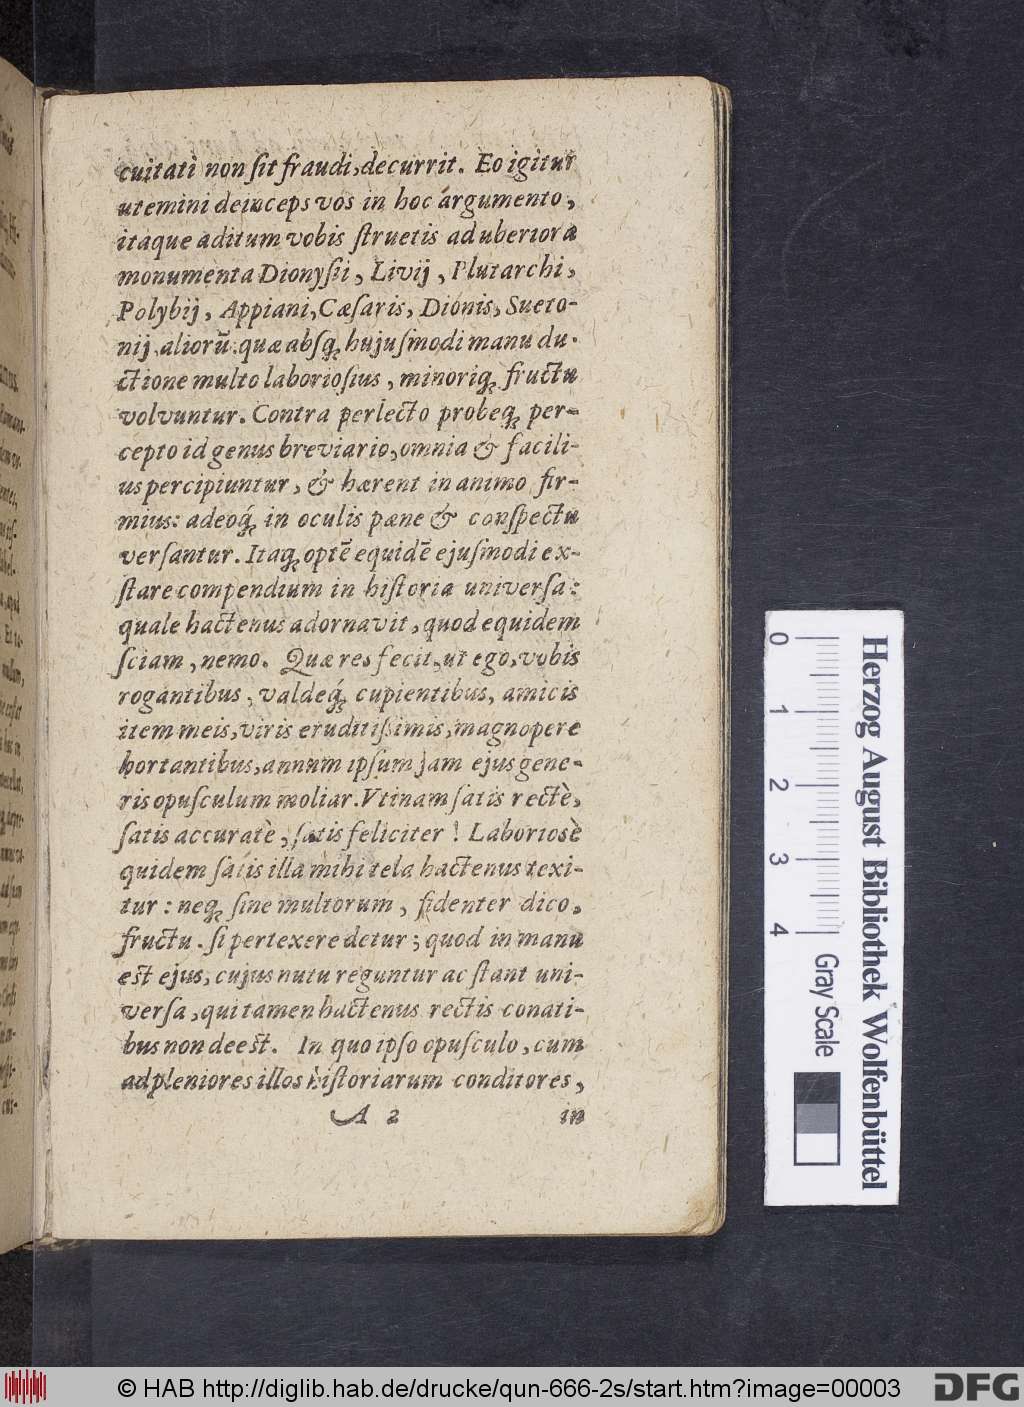 cuitati non ſit fraudi, decurrit. Eo igitur
utemini deinceps vos in hoc argumento,
itaque aditum vobis ſtruetis ad uberiora
monumenta Dionyſii, Livij, Plutarchi,
Polybij, Appiani, Cæſaris, Dionis, Sueto-
nij, aliorũ: quæ abſq; hujuſmodi manu du-
ctione multo laborioſius, minoriq; fructu
volvuntur. Contra perlecto probeq; per-
cepto id genus breviario, omnia & facili-
us percipiuntur, & hærent in animo fir-
mius: adeoq́; in oculis pæne & conſpectu
verſantur. Itaq; optẽ equidẽ ejuſmodi ex-
ſtare compendium in hiſtoria univerſa:
quale hactenus adornavit, quod equidem
ſciam, nemo. Quæ res fecit, ut ego, vobis
rogantibus, valdeq́; cupientibus, amicis
item meis, viris eruditiſſimis, magnopere
hortantibus, annum ipſum jam ejus gene-
ris opuſculum moliar. Vtinam ſatis rectè,
ſatis accuratè, ſatis feliciter! Laboriosè
quidem ſatis illa mihi tela hactenus texi-
tur: neq; ſine multorum, fidenter dico,
fructu. ſi pertexere detur; quod in manu
est ejus, cujus nutu reguntur ac ſtant uni-
verſa, qui tamen hactenus rectis conati-
bus non deest. In quo ipſo opuſculo, cum
ad pleniores illos hiſtoriarum conditores,
A 2 in
Herzog August Bibliothek Wolfenbüttel
0 1 2 3 4 Gray Scale
© HAB http://diglib.hab.de/drucke/qun-666-2s/start.htm?image=00003
DFG